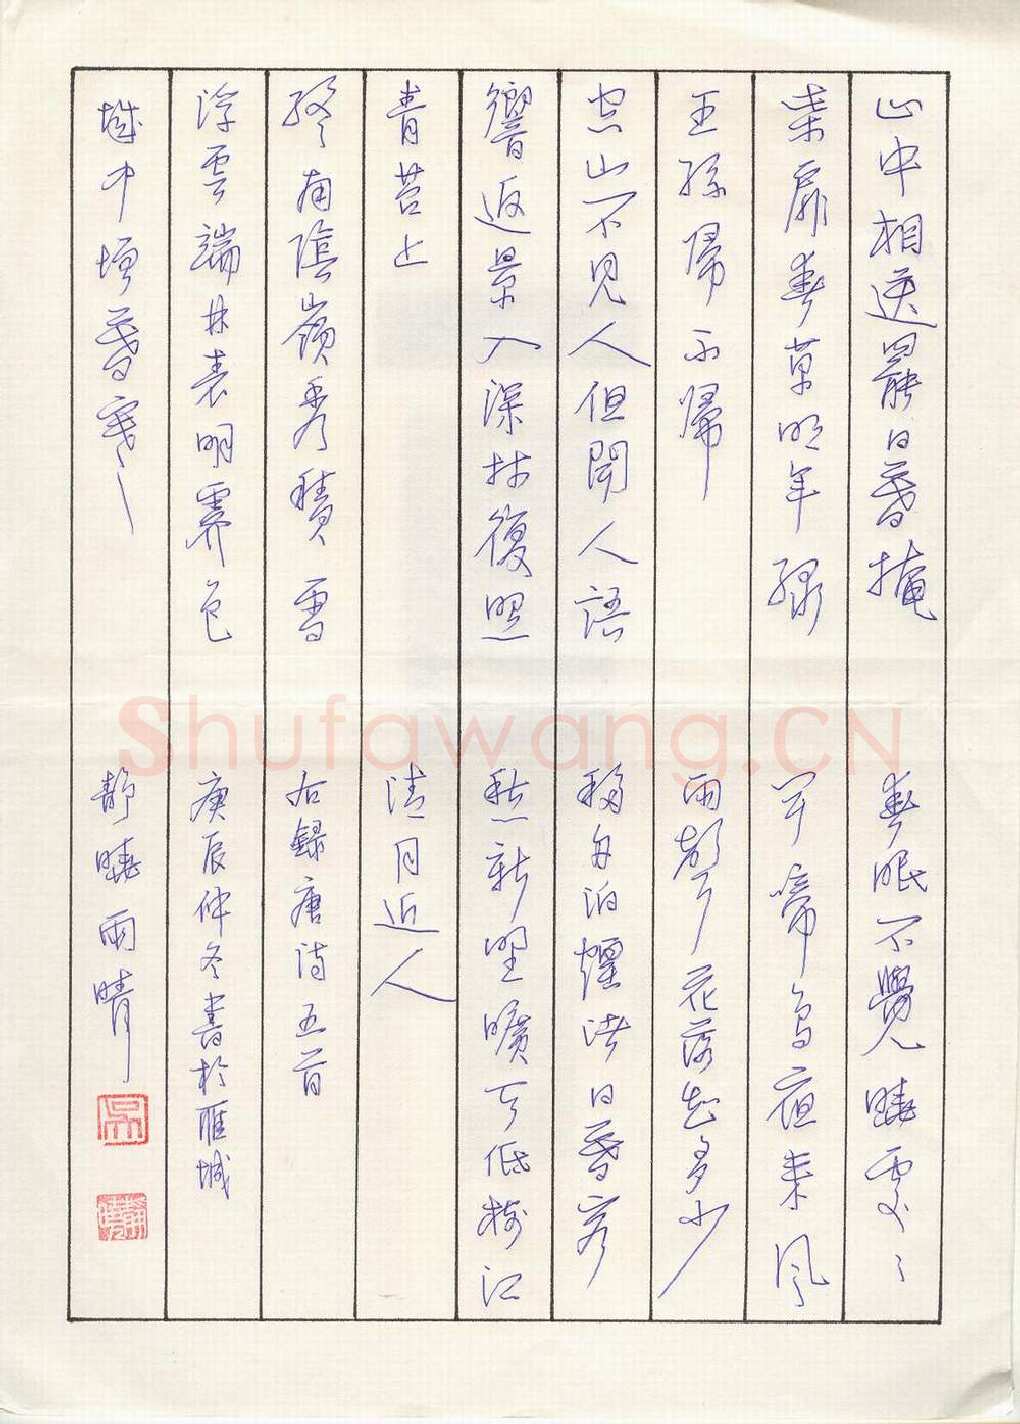 山中相送罷日暮掩
柴扉春草明年綠
王孫歸不歸
空山不見人但聞人語
響返景入深林復照
青苔上
終南陰嶺秀積雪
浮雲端林表明霽色
城中增暮寒
春眠不覺曉處〻
聞啼鳥夜来風
雨聲花落知多少
移舟泊煙渚日暮客
愁新野曠天低樹江
清月近人
右録唐詩五首
庚辰仲冬書於雁城
靜曉雨晴
Shufawang.CN